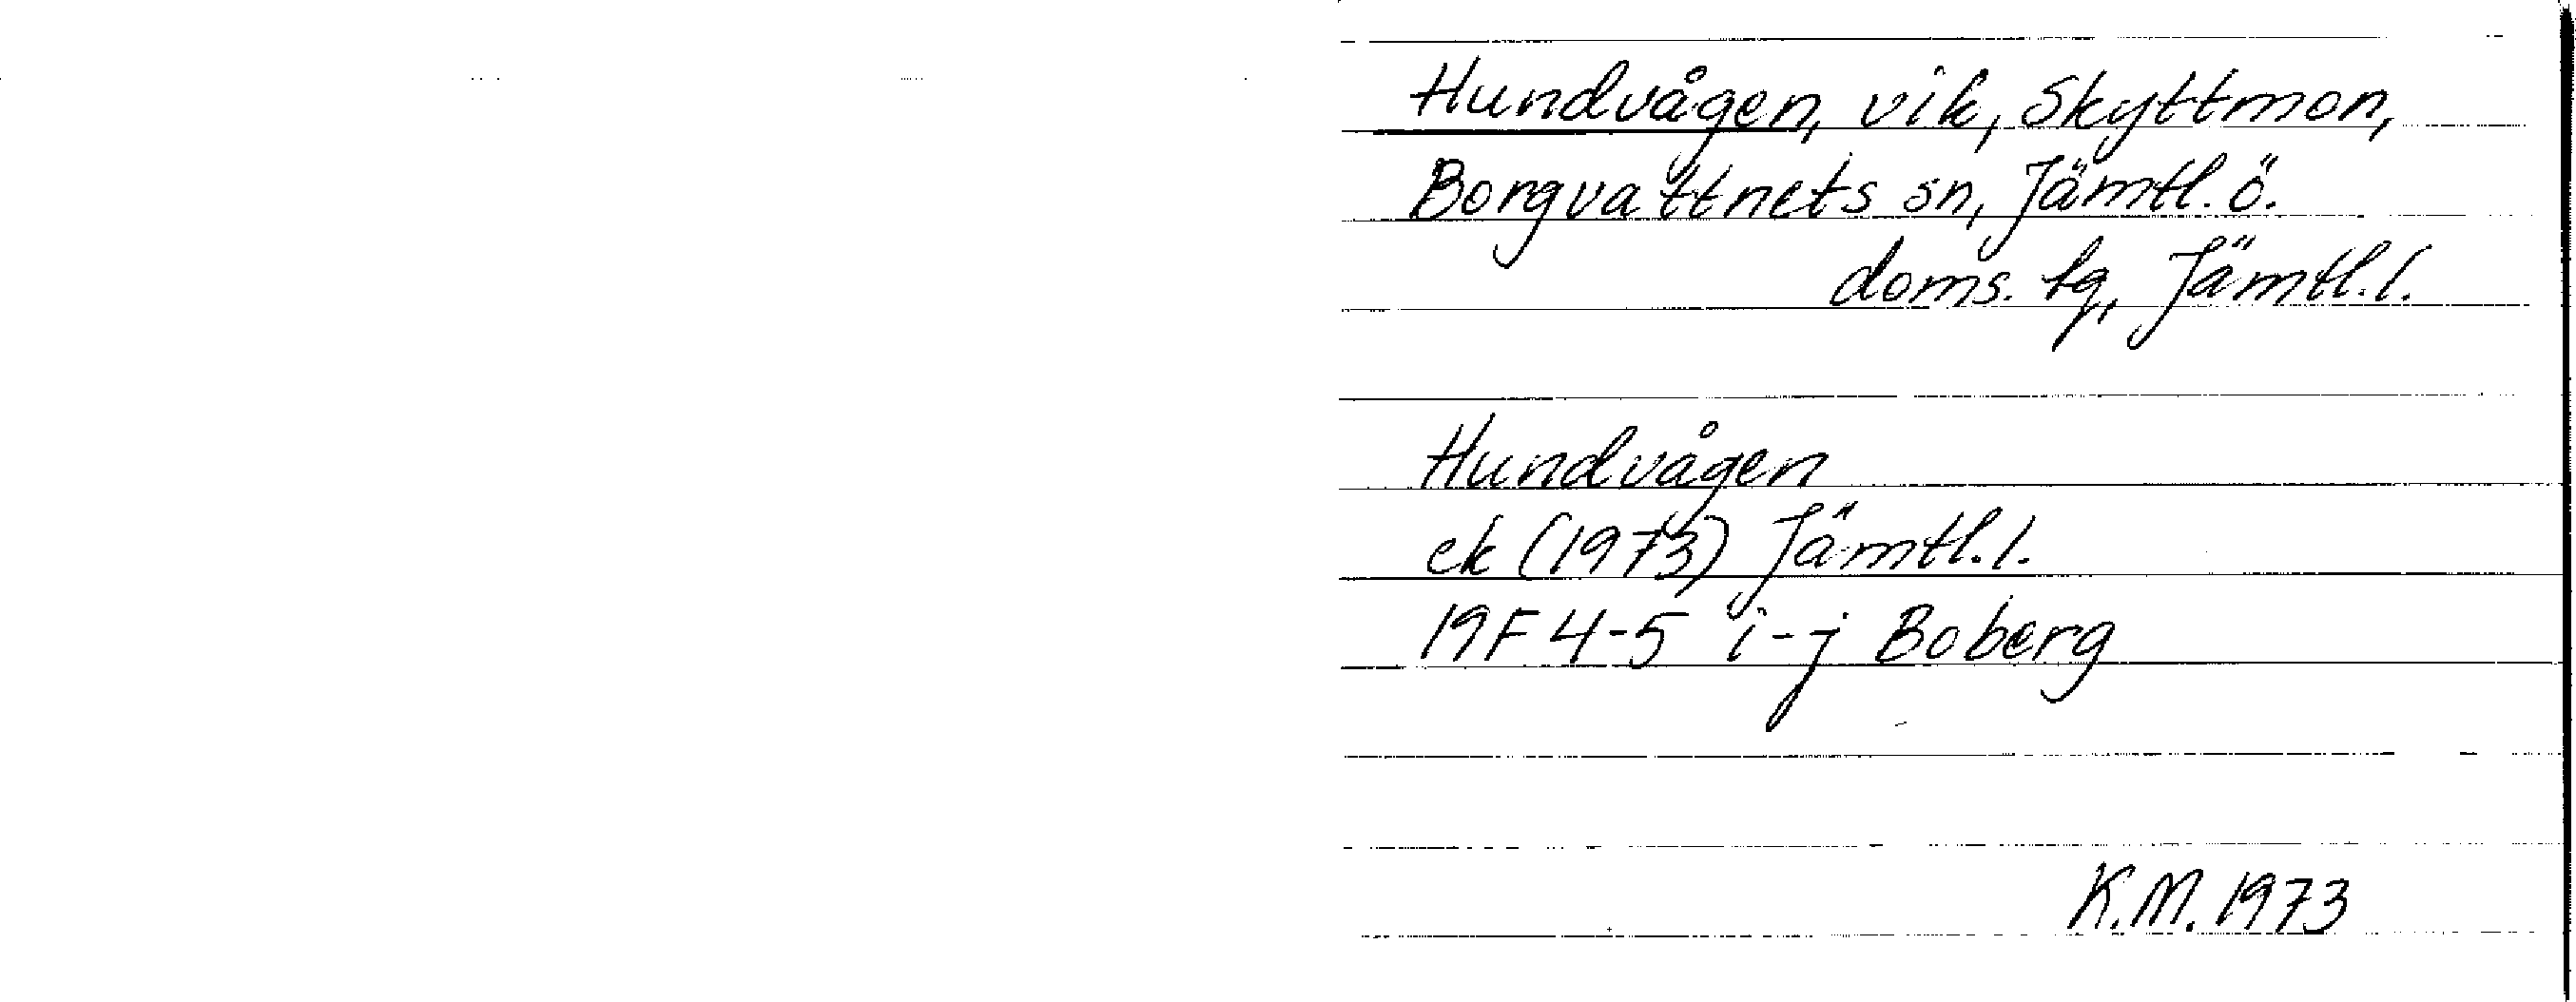 Hundvågen, vik, Skyttmon,
Borgvattnets sn, Jämtl. ö.
doms. tg, Jämtl. l.
Hundvågen
ek (1973) Jämtl. l.
19F 4-5 i-j Boberg
K.M. 1973